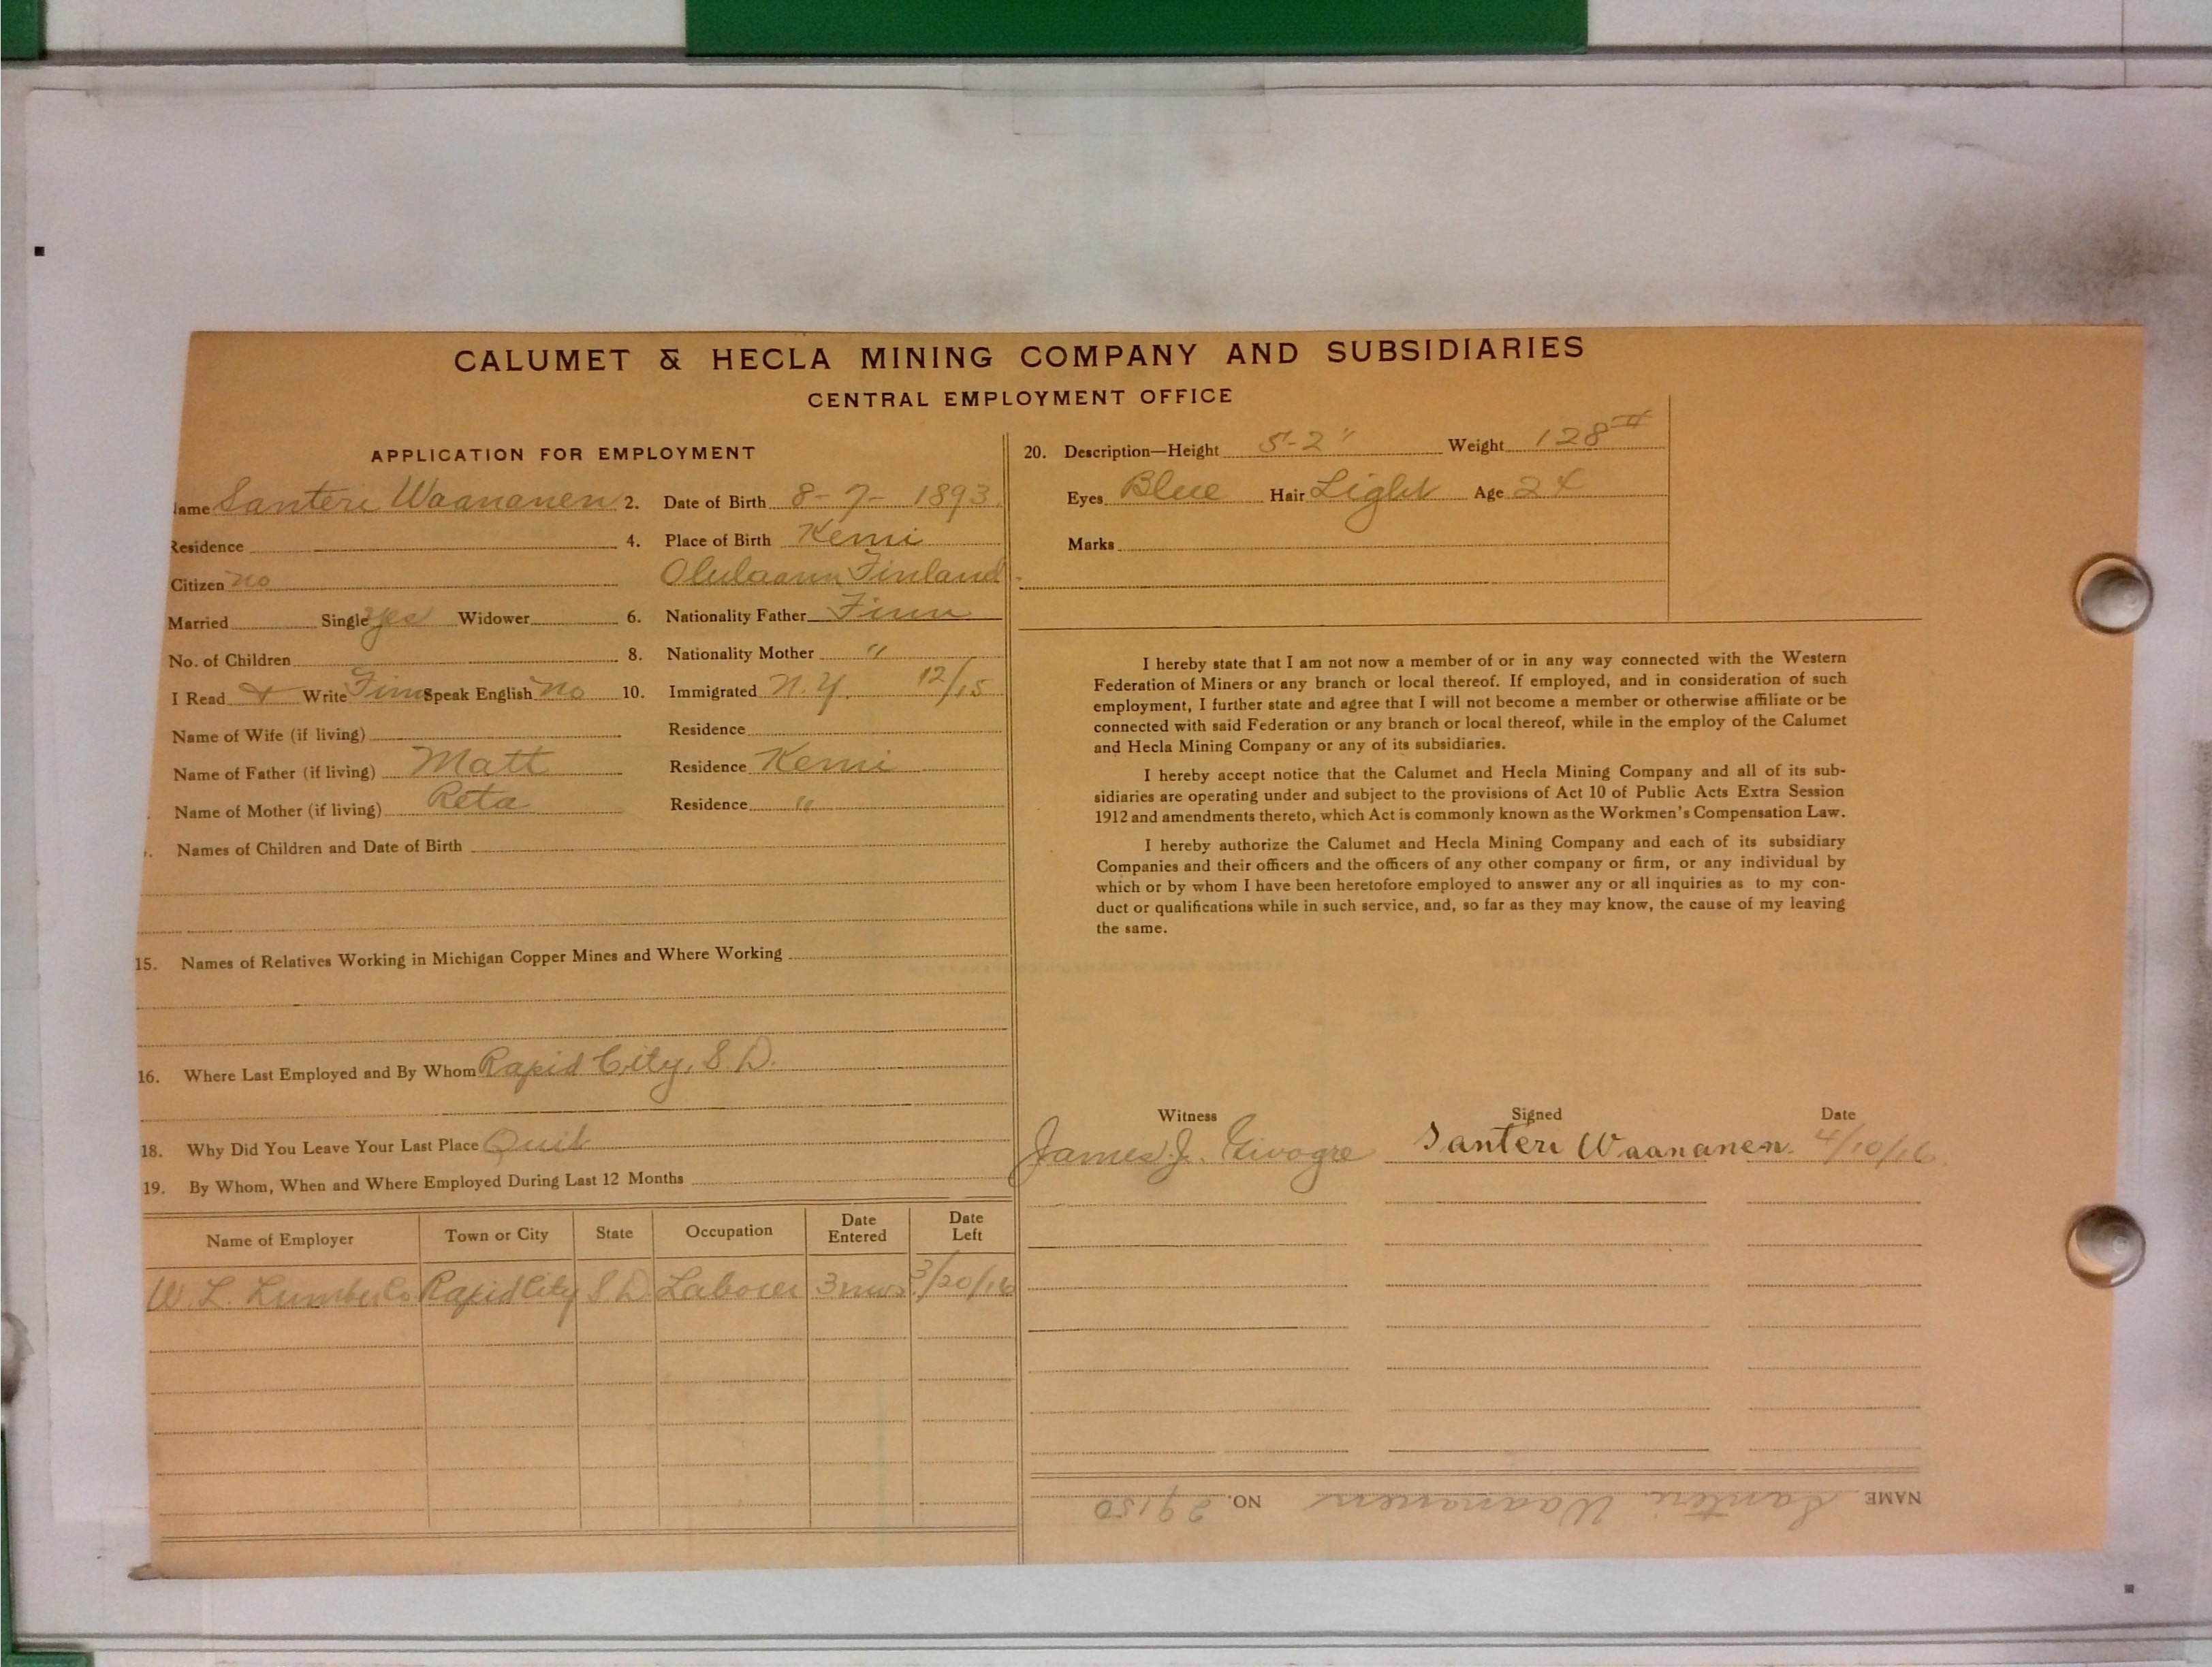 CALUMET & HECLA MINING COMPANY AND SUBSIDIARIES
CENTRAL EMPLOYMENT OFFICE
APPLICATION FOR EMPLOYMENT
ame Santeri Waananen 2. Date of Birth 8-7-1893
Residence 4. Place of Birth Kemi
Citizen no Finland
Married Single yes Widower 6. Nationality Father Finn
No. of Children 8. Nationality Mother "
I Read & Write Finn Speak English no 10. Immigrated N.Y. 12/15
Name of Wife (if living) Residence
Name of Father (if living) Matt Residence Kemi
Name of Mother (if living) Reta Residence "
Names of Children and Date of Birth
15. Names of Relatives Working in Michigan Copper Mines and Where Working
16. Where Last Employed and By Whom Rapid City, S.D.
18. Why Did You Leave Your Last Place Quit
19. By Whom, When and Where Employed During Last 12 Months
Name of Employer Town or City State Occupation Date Entered Date Left
W. L. Lumber Co Rapid City S D Laborer 3 mos 3/20/16
20. Description—Height 5'-2" Weight 128#
Eyes Blue Hair Light Age 24
Marks
I hereby state that I am not now a member of or in any way connected with the Western
Federation of Miners or any branch or local thereof. If employed, and in consideration of such
employment, I further state and agree that I will not become a member or otherwise affiliate or be
connected with said Federation or any branch or local thereof, while in the employ of the Calumet
and Hecla Mining Company or any of its subsidiaries.
I hereby accept notice that the Calumet and Hecla Mining Company and all of its sub-
sidiaries are operating under and subject to the provisions of Act 10 of Public Acts Extra Session
1912 and amendments thereto, which Act is commonly known as the Workmen's Compensation Law.
I hereby authorize the Calumet and Hecla Mining Company and each of its subsidiary
Companies and their officers and the officers of any other company or firm, or any individual by
which or by whom I have been heretofore employed to answer any or all inquiries as to my con-
duct or qualifications while in such service, and, so far as they may know, the cause of my leaving
the same.
Witness Signed Date
James J. Santeri Waananen. 4/10/16
NAME Santeri Waananen NO. 29150